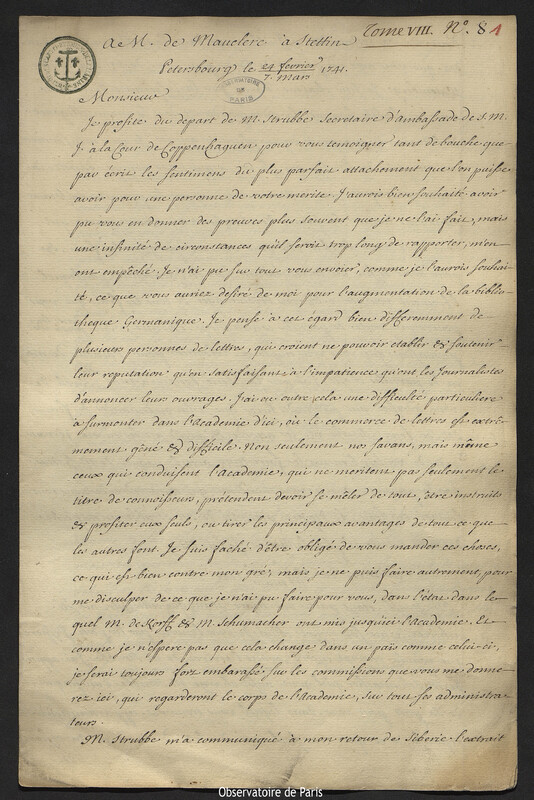 Tome VIII. N.º 81
A M. de Mauclerc à Stettin
Petersbourg le 24 fevrier / 7. mars 1741.
OBSERVATOIRE DE PARIS
Monsieur
Je profite du depart de M. Strubbe Secretaire d'ambassade de S. M.
I. à la Cour de Coppenhaguen pour vous temoigner tant de bouche que
par écrit les sentimens du plus parfait attachement que l'on puisse
avoir pour une personne de votre merite. J'aurois bien souhaité avoir
pu vous en donner des preuves plus souvent que je ne l'ai fait, mais
une infinité de circonstances qu'il seroit trop long de rapporter, m'en
ont empêché. Je n'ai pu sur tout vous envoier, comme je l'aurois souhai-
té, ce que vous auriez desiré de moi pour l'augmentation de la biblio-
theque Germanique. Je pense à cet égard bien differemment de
plusieurs personnes de lettres, qui croient ne pouvoir etablir & soutenir
leur reputation qu'en satisfaisant à l'impatience qu'ont les Journalistes
d'annoncer leurs ouvrages. J'ai eu outre cela une difficulté particuliere
à surmonter dans l'Academie d'ici, où le commerce de lettres est extrê-
mement gêné & difficile. Non seulement nos savans, mais même
ceux qui conduisent l'academie, qui ne meritent pas seulement le
titre de connoisseurs, prétendent devoir se mêler de tout, être instruits
& profiter eux seuls, ou tirer les principaux avantages de tout ce que
les autres font. Je suis faché d'être obligé de vous mander ces choses,
ce qui est bien contre mon gré, mais je ne puis faire autrement, pour
me disculper de ce que je n'ai pu faire pour vous, dans l'état dans le
quel M. de Korff & M. Schumacher ont mis jusqu'ici l'academie. Et
comme je n'espere pas que cela change dans un pais comme celui-ci,
je serai toujours fort embarassé sur les commissions que vous me donne-
rez ici, qui regarderont le corps de l'Academie, sur tout ses administra-
teurs.
M. Strubbe m'a communiqué à mon retour de Siberie l'extrait
Observatoire de Paris